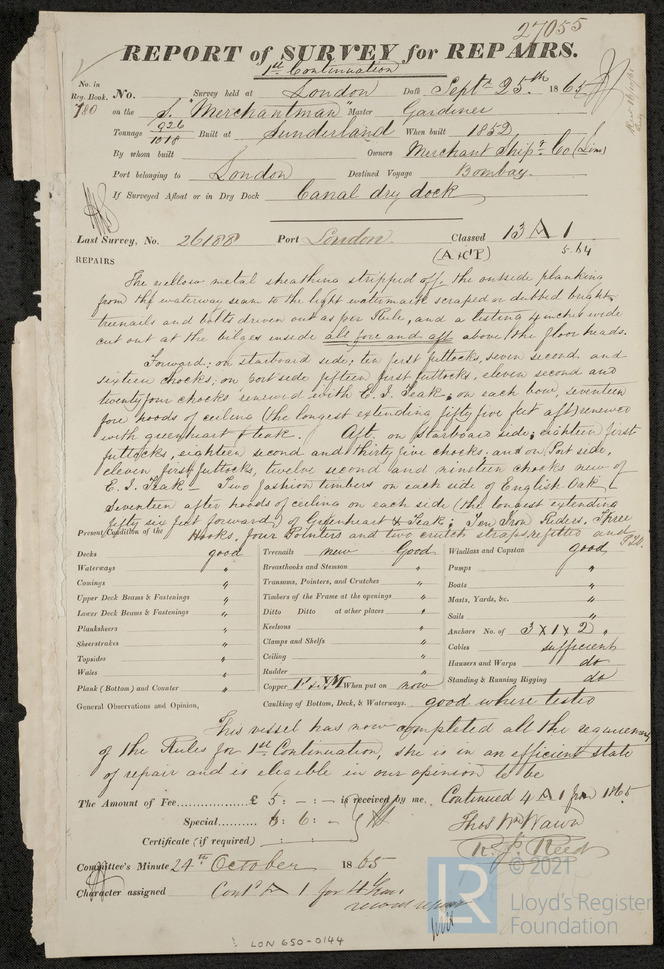 27055
REPORT of SURVEY for REPAIRS.
1st Continuation
No. in Reg. Book. No. Survey held at London Date Septr 25th 1865
780 on the S. "Merchantman" Master Gardiner
Tonnage 926 / 1018 Built at Sunderland When built 1852
By whom built Owners Merchant Shipg Co (Lim)
Port belonging to London Destined Voyage Bombay.
If Surveyed Afloat or in Dry Dock Canal dry dock
Last Survey, No. 26188 Port London. Classed 13 A 1
(A & CP) 5.64
REPAIRS
The yellow metal sheathing stripped off. the outside planking
from the waterway seam to the light watermark scraped or dubbed bright,
trenails and bolts driven out as per Rule, and a listing 4 inches wide
cut out at the bilges inside all fore and aft above the floor heads.
Forward; on starboard side; ten first futtocks, seven second and
sixteen chocks, on port side fifteen first futtocks, eleven second and
twenty four chocks renewed with E. I. Teak; on each bow, seventeen
fore hoods of ceiling (the longest extending fifty five feet aft) renewed
with greenheart & teak. Aft. on starboard side; eighteen first
futtocks, eighteen second and thirty five chocks; and on Port side,
eleven first futtocks, twelve second and nineteen chocks new of
E. I. Teak – Two fashion timbers on each side of English Oak &
Seventeen after hoods of ceiling on each side (the longest extending
fifty six feet forward) of Greenheart & Teak; Ten Iron Riders, Three
Present Condition of the Hooks, four Pointers and two crutch straps refitted and
P.T.O.
Decks good Treenails new Good Windlass and Capstan good
Waterways " Breasthooks and Stemson " Pumps "
Comings " Transoms, Pointers, and Crutches " Boats "
Upper Deck Beams & Fastenings " Timbers of the Frame at the openings " Masts, Yards, &c. "
Lower Deck Beams & Fastenings " Ditto Ditto at other places " Sails "
Planksheers " Keelsons " Anchors No. of 3 X 1 X 2 "
Sheerstrakes " Clamps and Shelfs " Cables sufficient
Topsides " Ceiling " Hausers and Warps do
Wales " Rudder " Standing & Running Rigging do
Plank (Bottom) and Counter " Copper F & YM When put on now
General Observations and Opinion, Caulking of Bottom, Deck, & Waterways. good where tested
This vessel has now completed all the requirements
of the Rules for 1st Continuation, she is in an efficient state
of repair and is eligible in our opinion to be
The Amount of Fee £ 5: – : – is received by me, Continued 4 A 1 from 1865
Special 5: 6: –
Certificate (if required) : :
Thos Wm Wawn
R. J. Reed
Committee's Minute 24th October 1865
Character assigned Contd A 1 for 4 Years
record repairs
LON 650-0144
© 2021
LR
Lloyd's Register
Foundation